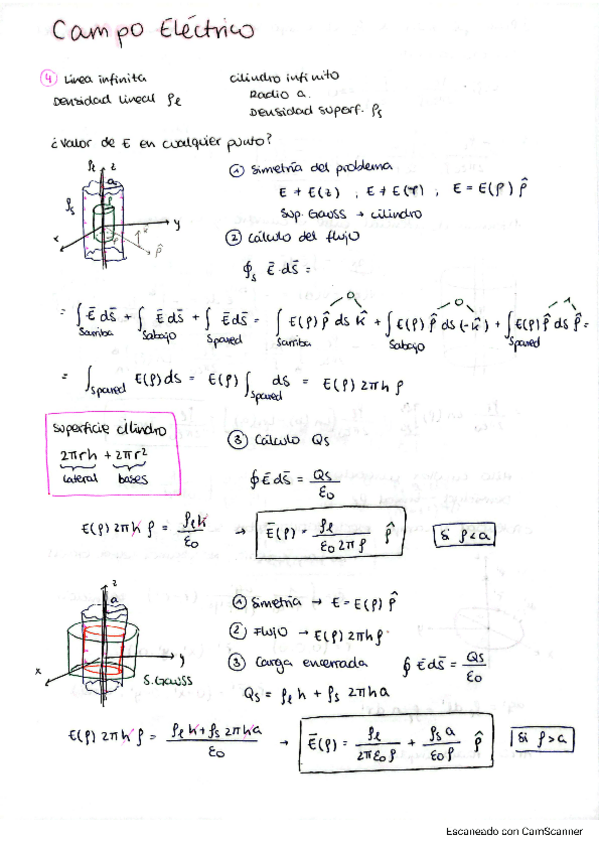 Campo Eléctrico
④ Línea infinita
Densidad lineal ρℓ
cilindro infinito
Radio a.
Densidad superf. ρs
¿Valor de E en cualquier punto?
ρℓ z
a
ρs
ρ
x y
ρ̂
① Simetría del problema
E ≠ E(z) , E ≠ E(φ) , E = E(ρ) ρ̂
Sup. Gauss → cilindro
② Cálculo del flujo
∮s Ē·ds̄ =
= ∫Sarriba Ē ds̄ + ∫Sabajo Ē ds̄ + ∫Spared Ē ds̄ = ∫Sarriba E(ρ) ρ̂ ds k̂ + ∫Sabajo E(ρ) ρ̂ ds (-k̂) + ∫Spared E(ρ) ρ̂ ds ρ̂ =
0 0 1
= ∫Spared E(ρ) ds = E(ρ) ∫Spared ds = E(ρ) 2πh ρ
superficie cilindro
2πrh + 2πr²
lateral bases
③ Cálculo Qs
∮ Ē ds̄ = Qs/ε0
E(ρ) 2πh ρ = ρℓ h/ε0 → Ē(ρ) = ρℓ/(ε0 2π ρ) ρ̂ Si ρ < a
z
a
x y
S. Gauss
① Simetría → E = E(ρ) ρ̂
② Flujo → E(ρ) 2πhρ
③ Carga encerrada ∮ Ē ds̄ = Qs/ε0
Qs = ρℓ h + ρs 2πha
E(ρ) 2πh ρ = (ρℓ h + ρs 2πha)/ε0 → Ē(ρ) = ρℓ/(2πε0ρ) + ρs a/(ε0ρ) ρ̂ Si ρ > a
Escaneado con CamScanner